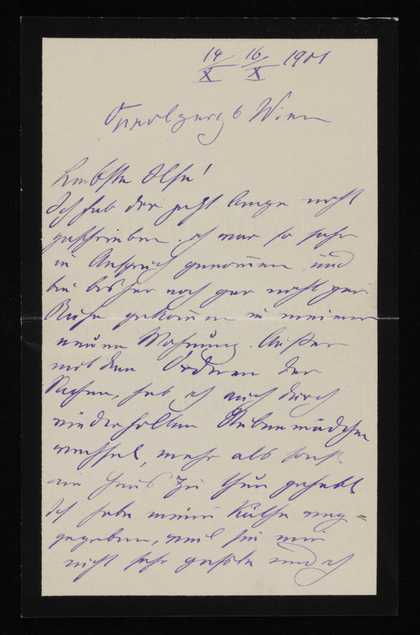 14/X 16/X 1901
Oppolzerg 6 Wien
Liebste Olga!
Ich hab Dir jetzt lange nicht
geschrieben. ich war so sehr
in Anspruch genommen und
bin bisher noch gar nicht zur
Ruhe gekommen in meiner
neuen Wohnung. Außer
mit dem Ordnen der
Sachen, hab ich auch durch
wiederholten Stubenmädchen
wechsel, mehr als sonst
im Haus zu thun gehabt
Ich habe meine Käthe weg=
gegeben, weil sie mir
nicht sehr gefiel und ich